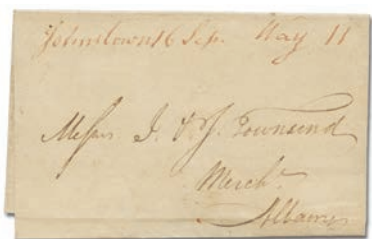 Johnstown 16 Sep. Way 11
Messrs I. & J. Townsend
Mercht
Albany